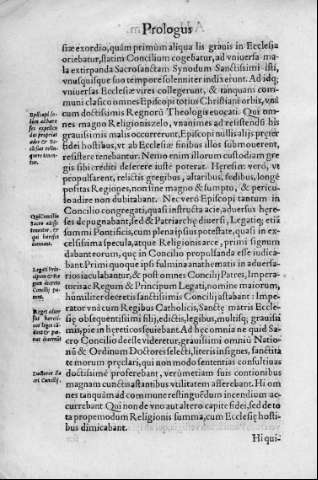 Prologus
siæ exordio, quàm primùm aliqua lis grauis in Ecclesia
oriebatur, statim Concilium cogebatur, ad vniuersa ma-
la extirpanda Sacrosanctam Synodum Sanctissimi isti,
vnusquisque suo tempore solenniter indixerunt. Ad idq;
vniuersas Ecclesiæ vires collegerunt, & tanquam com-
muni clasico omnes Episcopi totius Christiani orbis, vnà
cum doctissimis Regnorũ Theologis euocati. Qui om-
nes magno Religionis zelo, vnanimes ad resistendũ his
grauissimis malis occurrerunt, Episcopi nullis alijs præter
fidei hostibus, vt ab Ecclesiæ finibus illos submouerent,
resistere tenebantur. Nemo enim illorum custodiam gre
gis sibi crediti deserere iustè poterat. Heresim verò, vt
propulsarent, relictis gregibus, altaribus, sedibus, longè
positas Regiones, non sine magno & sumptu, & pericu-
lo adire non dubitabant. Nec verò Episcopi tantum in
Concilio congregati, quasi instructa acie, aduersus hære-
ses depugnabant, sed & Patriarchę diuersi, Legatiq; etiã
summi Pontificis, cum plena ipsius potestate, quasi in ex-
celsissima specula, atque Religionis arce, primi signum
dabant eorum, quę in Concilio propulsanda esse iudica-
bant. Primi quoque ipsi fulmina anathematis in aduersa-
rios iaculabantur, & post omnes Concilij Patres, Impera-
torię ac Regum & Principum Legati, nomine maiorum,
humiliter decretis sanctissimis Concilij astabant: Impe-
rator vnà cum Regibus Catholicis, Sanctę matris Eccle-
się obsequentissimi filij, edictis, legibus, multisq; grauissi
mis, pie in hereticos sęuiebant. Ad hęc omnia ne quid Sa-
cro Concilio deesse videretur, grauissimi omniũ Natio-
nũ & Ordinum Doctores selecti, literis insignes, sanctita
te morum pręclari, qui non modo sententias consultius ac
doctissimè proferebant, verùm etiam suis contionibus
magnam cunctis astantibus vtilitatem asserebant. Hi om
nes tanquàm ad commune restinguẽdum incendium ac-
currebant. Qui non de vno aut altero capite fidei, sed de to
ta propemodum Religionis summa, cum Ecclesię hosti-
bus dimicabant.
Hi qui-